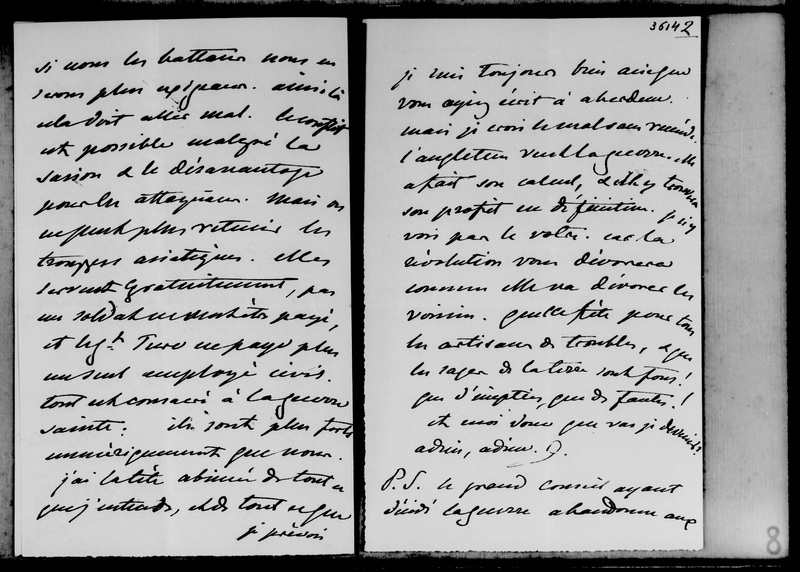 si nous les battons nous en
serons plus exigeans. ainsi là
cela doit aller mal. le conflit
est possible malgré la
saison & le désavantage
pour les attaquans. mais on
ne peut plus retenir les
troupes asiatiques. elles
servent gratuitement, pas
un soldat ne paye,
et le gt Turc ne paye plus
un seul employé civil.
tout est consacré à la guerre
sainte. ils sont plus forts
numériquement que nous.
j'ai la tête abimée de tout ce
que j'entends, et de tout ce que
je prévois
36142
je suis toujours bien aise que
vous ayez écrit à aberdeen.
mais je crois le mal sans remède.
l'angleterre veut la guerre. elle
a fait son calcul, & elle y trouvera
son profit en définitive. je n'y
vois pas le votre. car la
révolution vous dévorera
comme elle va dévorer les
voisins. quelle fête pour tous
les artisans de troubles, & que
les sages de la terre sont fous!
que d'inepties, que de fautes!
et moi donc que vas je devenir?
adieu, adieu.
P.S. le grand conseil ayant
décidé la guerre abandonne aux
8